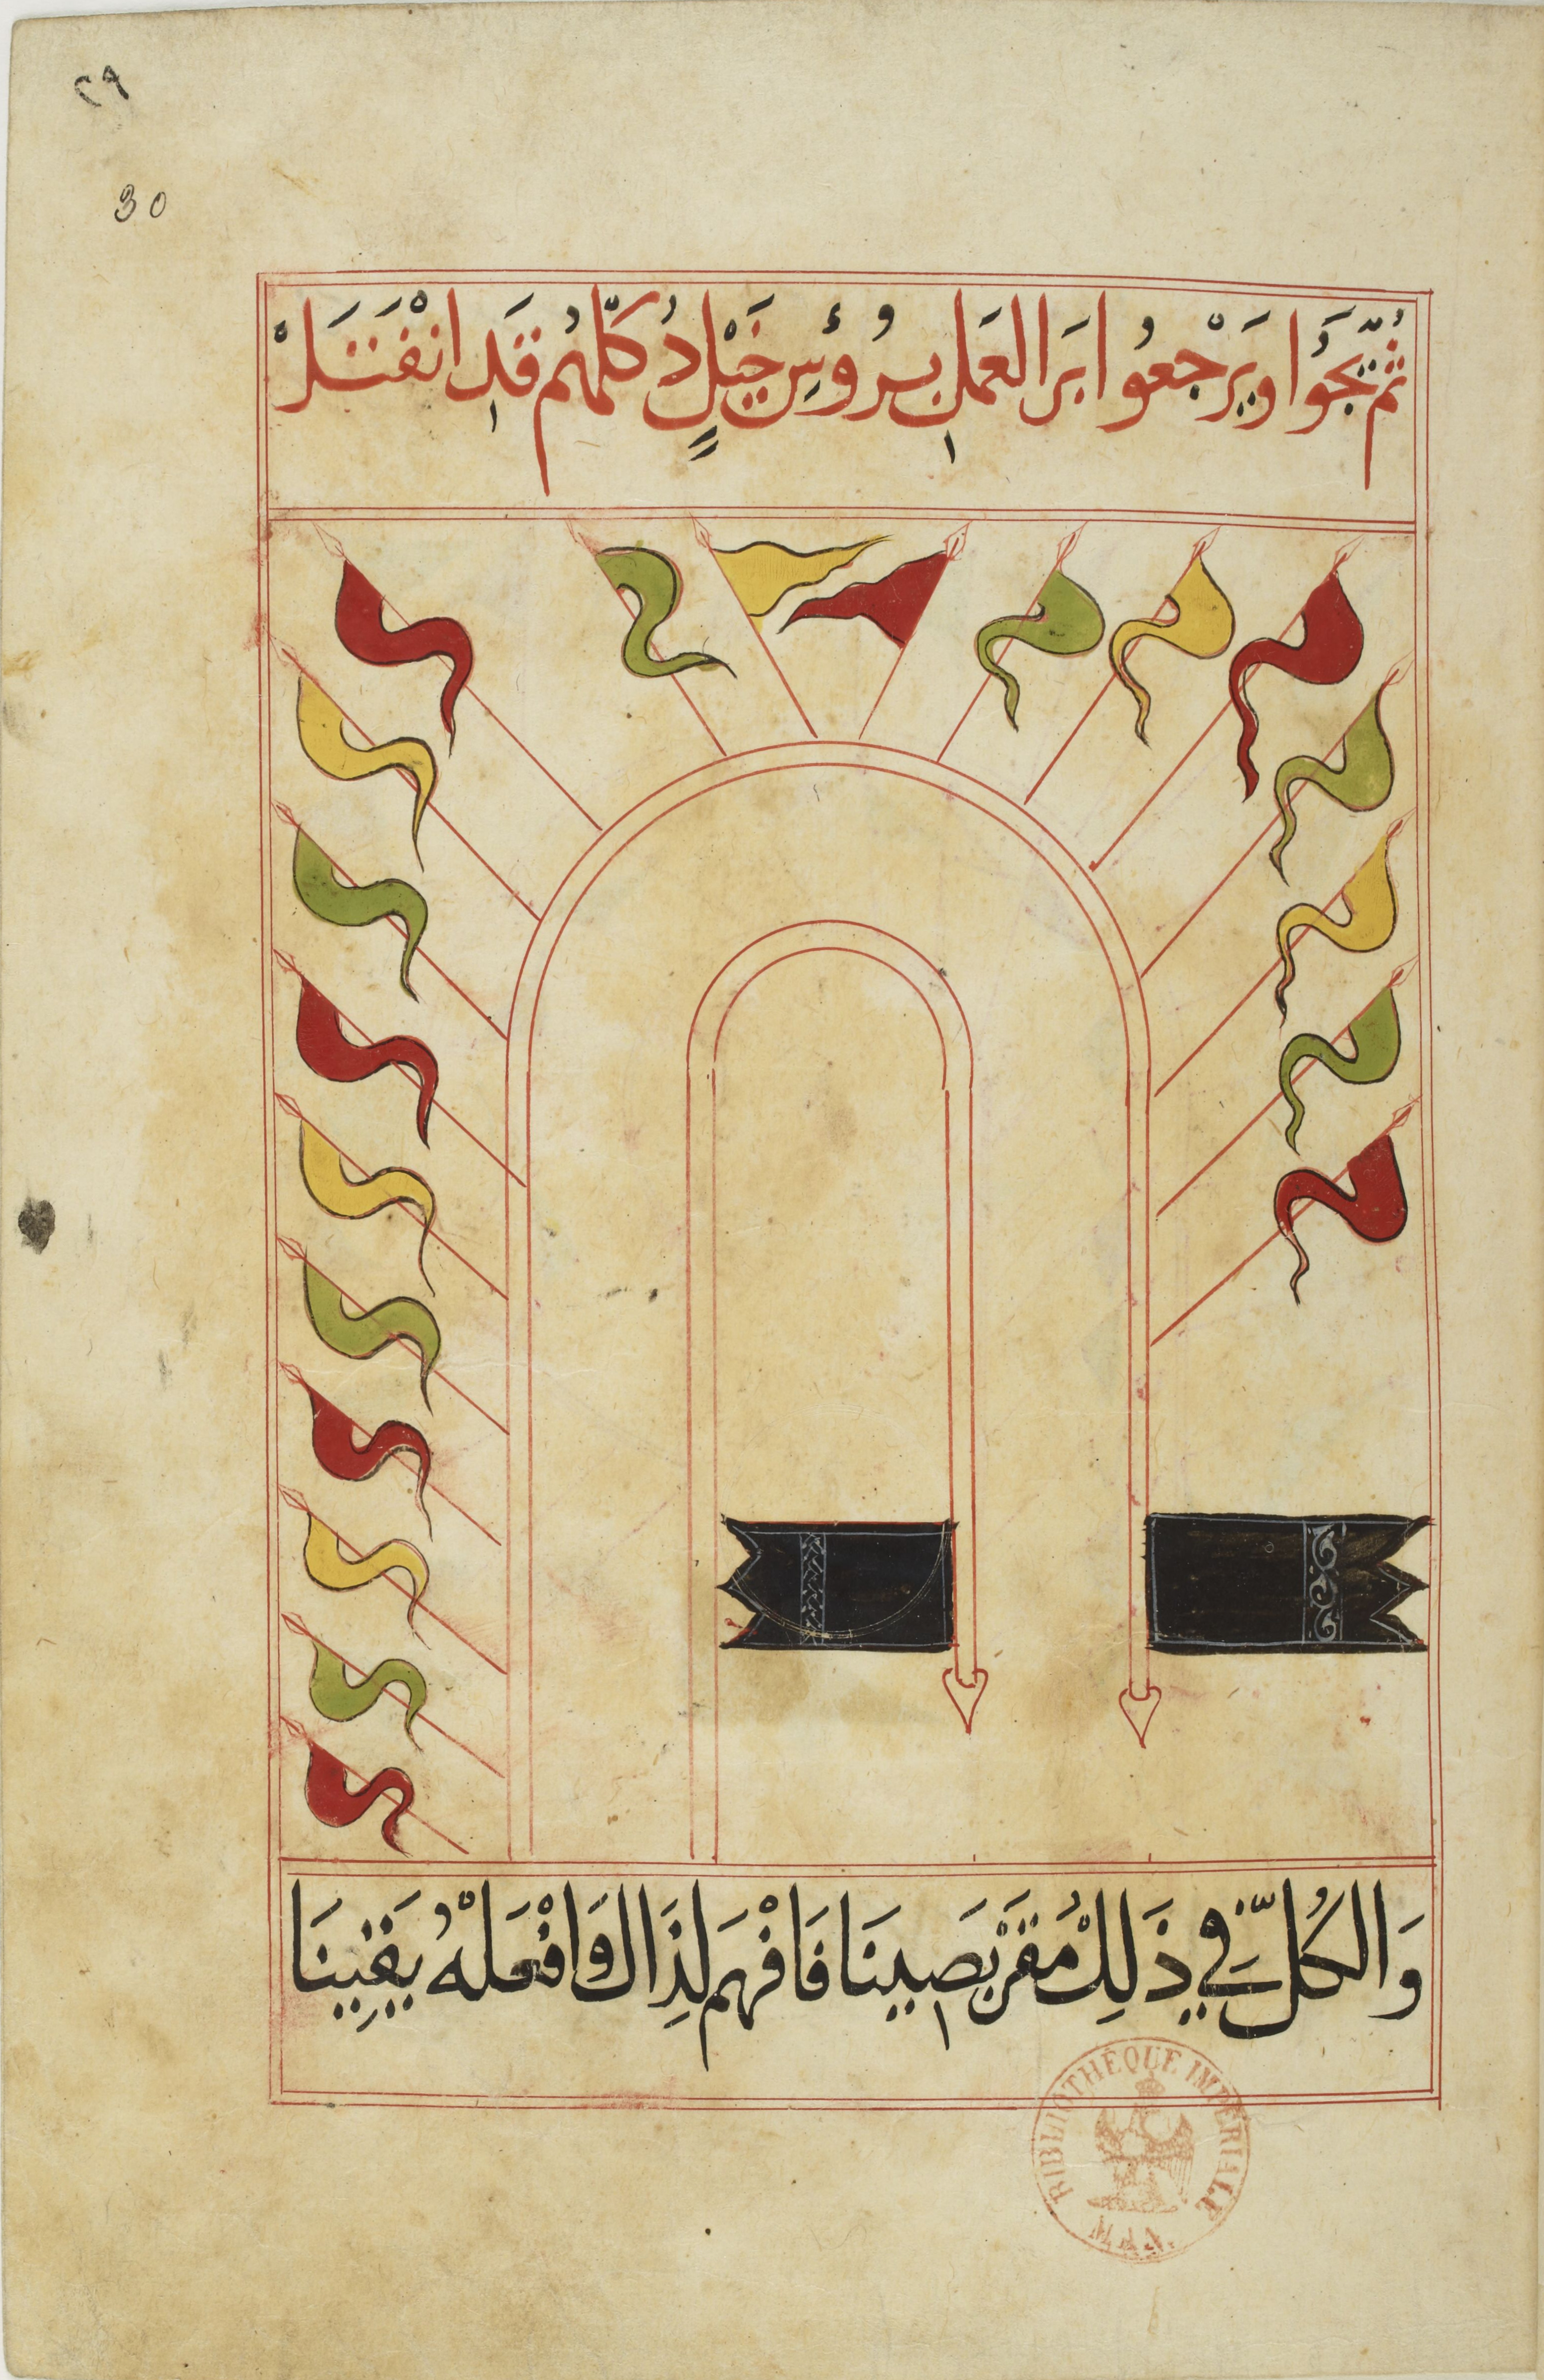 ٢٩
30
ثُمَّ يَجُوا وَيَرْجعُوا بَرا العَمَل بِرُوُّسِ خَيْلٍ دُ كلّهُم قَدِ انْفَتَلْ
وَالكُلُّ فِي ذَلِكْ مُقَرْبَصِينَا فَافْهَم لِذَاكَ وَافْعَلْهُ يَقِينَا
BIBLIOTHÈQUE IMPÉRIALE
MAN.